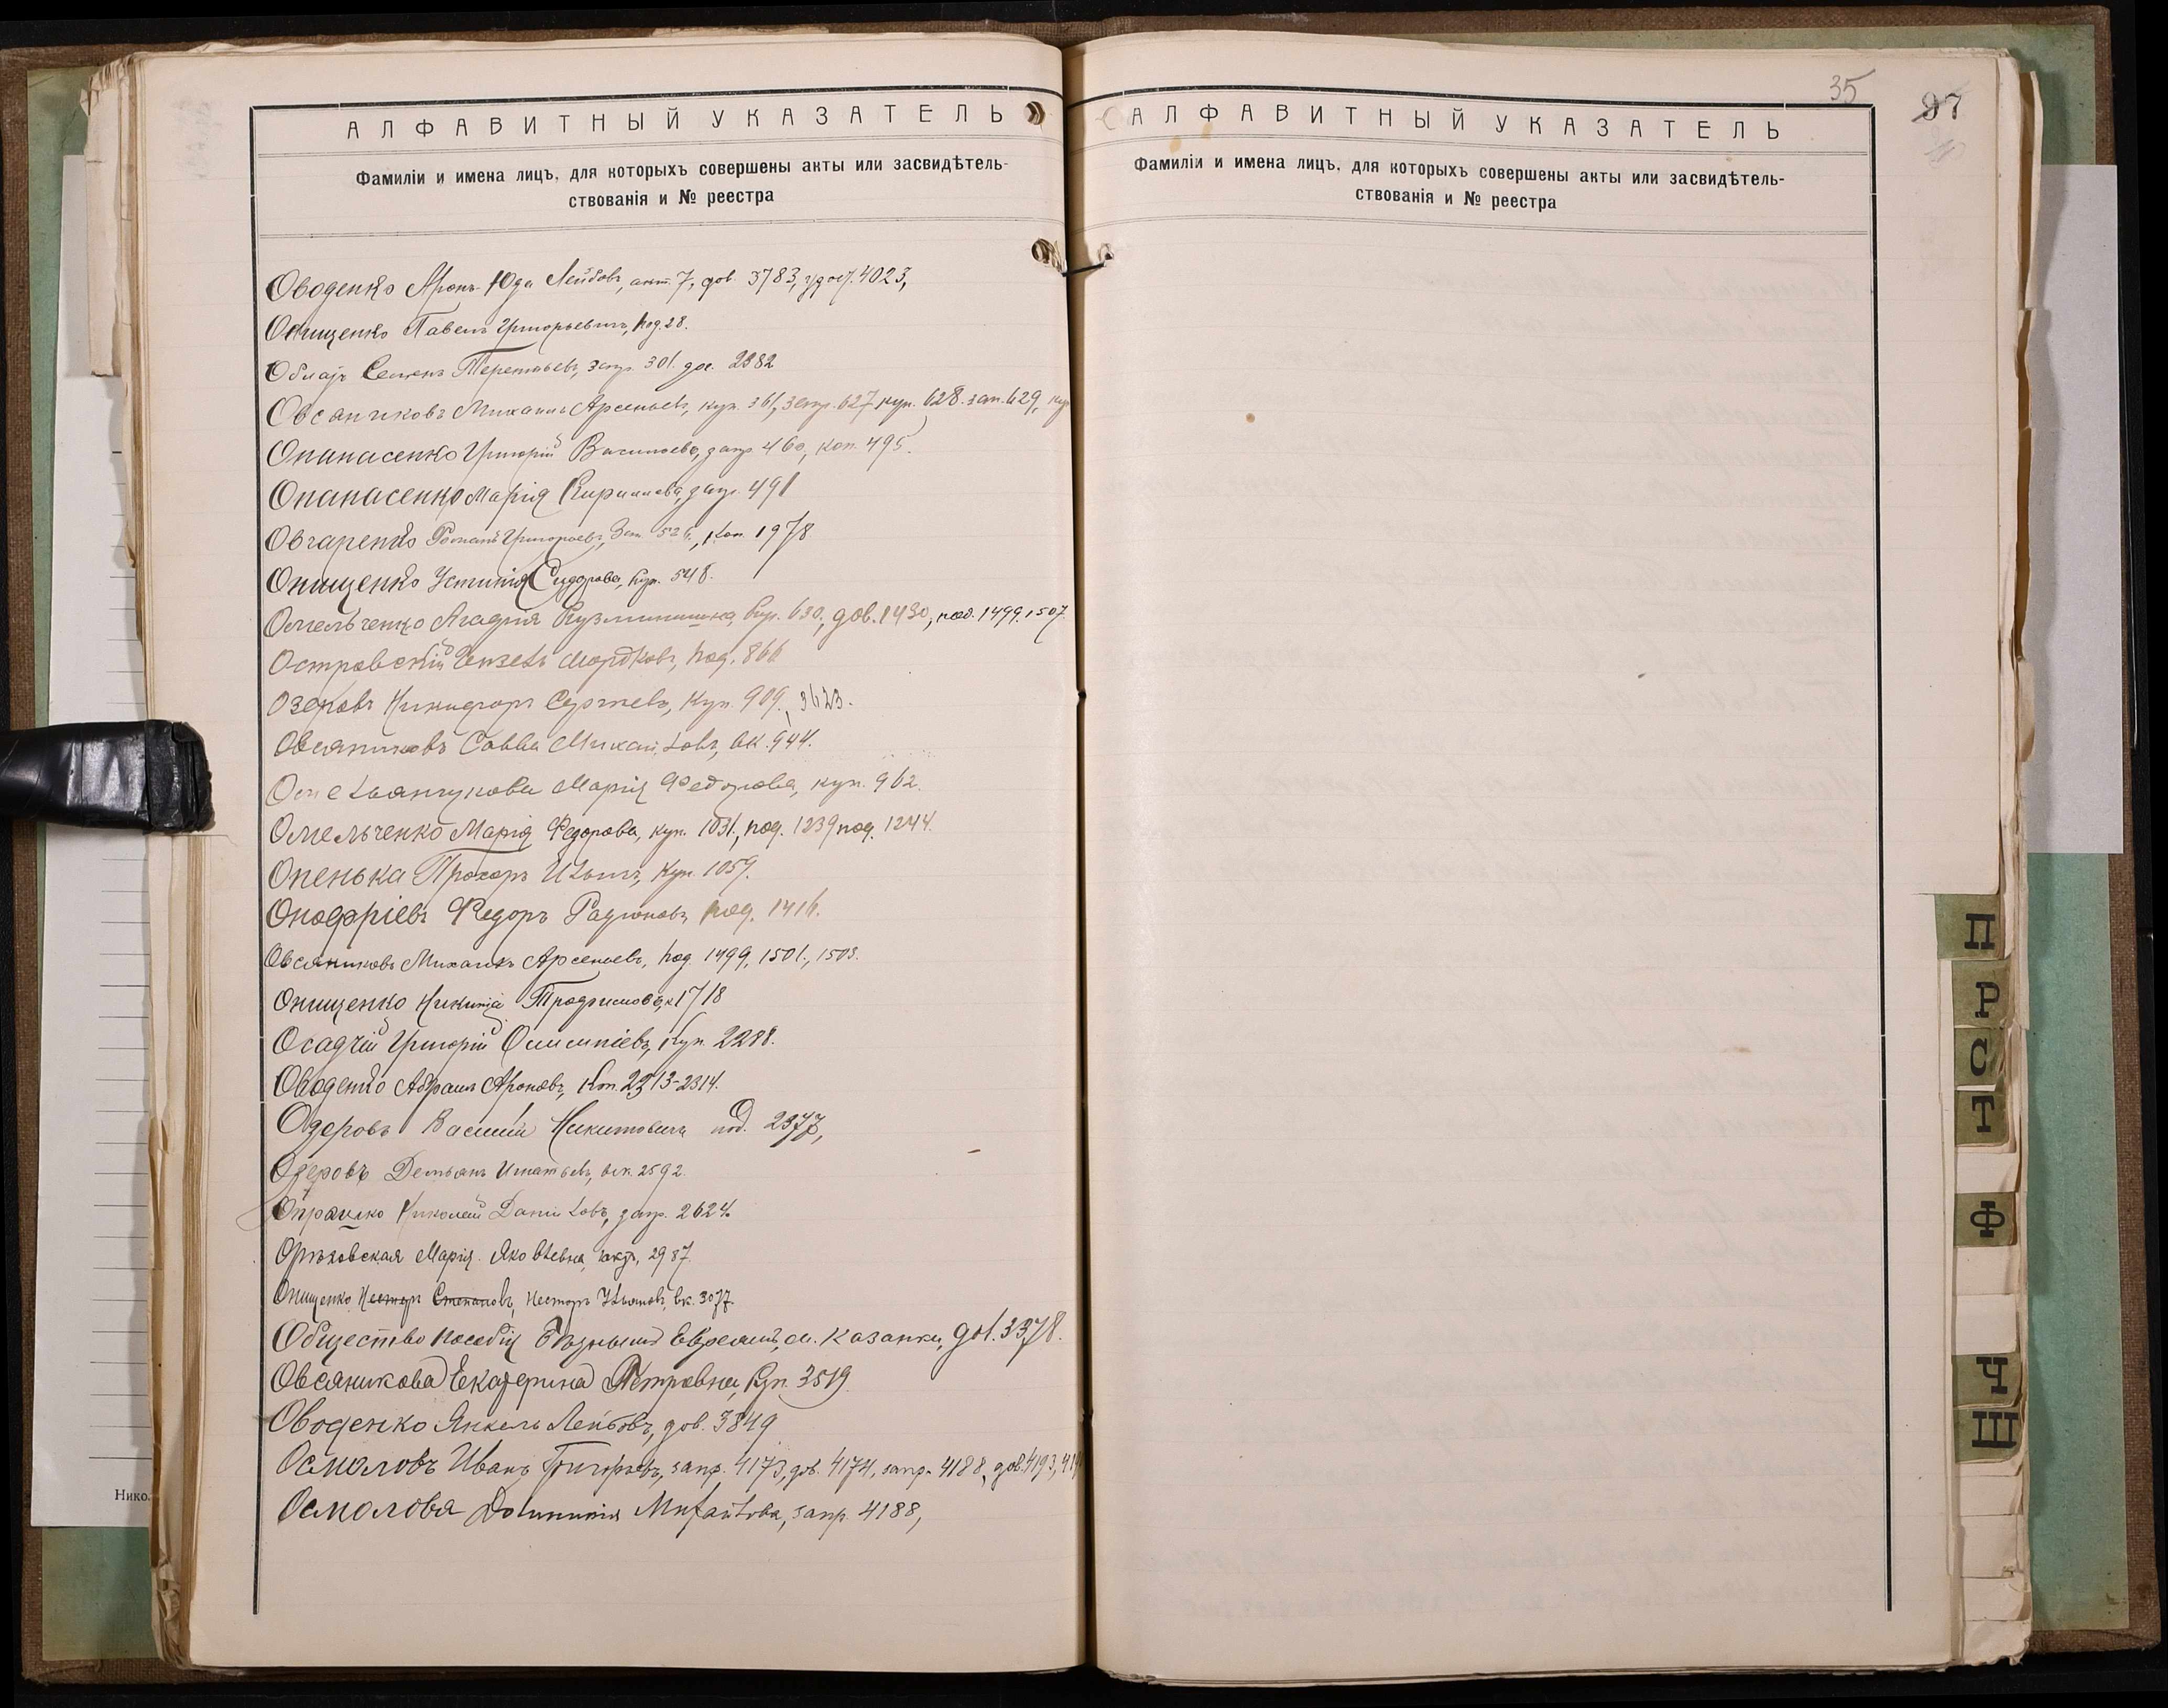 АЛФАВИТНЫЙ УКАЗАТЕЛЬ
Фамиліи и имена лицъ, для которыхъ совершены акты или засвидѣтель-
ствованія и № реестра
Оводенко Аронъ-Юда Лейбовъ, акт. 7, дов. 3783, 4023,
Онищенко Павелъ Григорьевичъ, под. 28.
Семенъ Терентьевъ, запр. 301. 2382
Овсаниковъ Михаилъ Арсеньевъ, куп. 361, запр. 627 куп. 628. зап. 629, куп
Опанасенко Григорій Васильевъ, запр. 460, коп. 495.
Опанасенко Марія Кириллова, запр. 491
Овчаренко Романъ Григорьевъ, коп. 1978
Онищенко Устинія Сидорова, куп. 548.
Омельченко Агафія Кузьминишна, куп. 630, дов. 1430, под. 1499, 1507
Островскій Мордковъ, под. 866
Озеровъ Никифоръ Сергѣевъ, куп. 909, 3623.
Овсяниковъ Савва Михайловъ, вк. 944.
Омельянчукова Марія Федорова, куп. 962.
Омельченко Марія Федорова, куп. 1031, под. 1239 под. 1244.
Опенька Прохоръ Ильичъ, куп. 1059.
Оноффріевъ Федоръ Радіоновъ, под. 1416.
Овсяниковъ Михаилъ Арсеньевъ, под. 1499, 1501, 1503.
Онищенко Никита Трофимовъ, 1718
Осадчій Григорій Олимпіевъ, куп. 2288.
Оводенко Абрамъ Ароновъ, коп. 2313-2314.
Озеровъ Василій Никитовичъ под. 2377,
Озеровъ Демьянъ Игнатьевъ, вк. 2592.
Николай Данииловъ, запр. 2624.
Орѣховская Марія Яковлевна, 2987.
Онищенко Несторъ Степановъ, Несторъ Ульяновъ, вк. 3077.
Общество пособія бѣднымъ евреямъ, м. Казанки, дов. 3378.
Овсяникова Екатерина Петровна, куп. 3519.
Оводенко Янкель Лейбовъ, дов. 3849
Осмоловъ Иванъ Григорьевъ, запр. 4173, дов. 4174, запр. 4188, дов. 4193,
Осмолова Михайлова, запр. 4188,
35
97
АЛФАВИТНЫЙ УКАЗАТЕЛЬ
Фамиліи и имена лицъ, для которыхъ совершены акты или засвидѣтель-
ствованія и № реестра
П
Р
С
Т
Ф
Ч
Ш
Нико